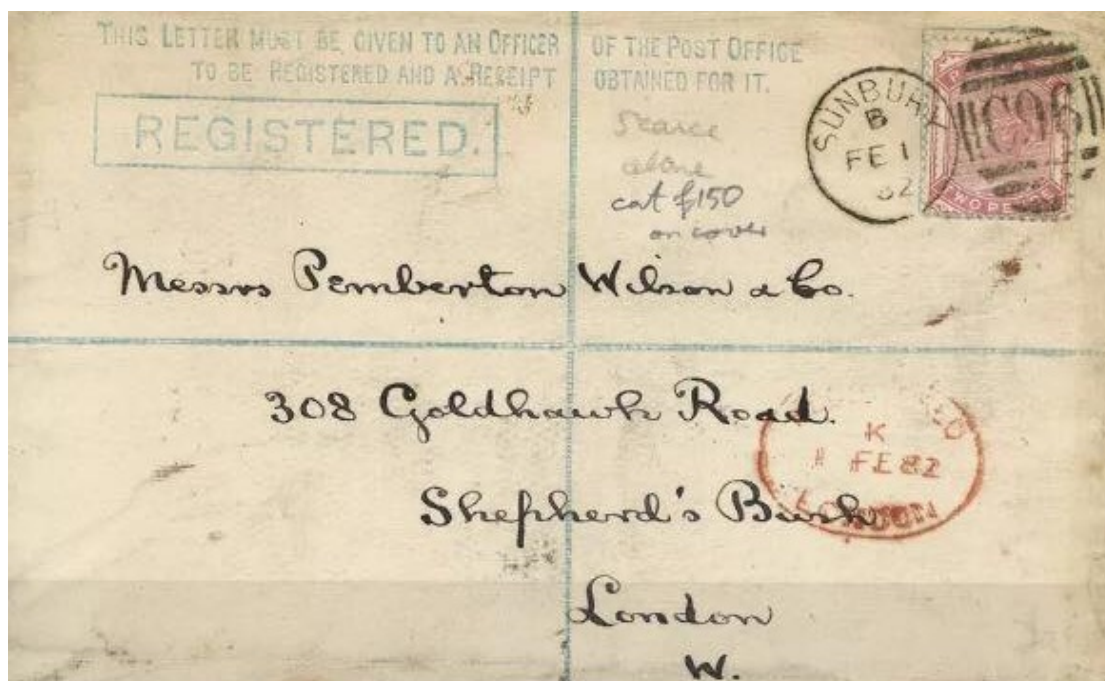 THIS LETTER MUST BE GIVEN TO AN OFFICER OF THE POST OFFICE
TO BE REGISTERED AND A RECEIPT OBTAINED FOR IT.
REGISTERED.
Scarce
alone
cat £150
on cover
SUNBURY
B
FE 1
82
C96
TWO PENCE
Messrs Pemberton Wilson & Co.
308 Goldhawk Road.
K
1 FE 82
LONDON
Shepherd's Bush
London
W.